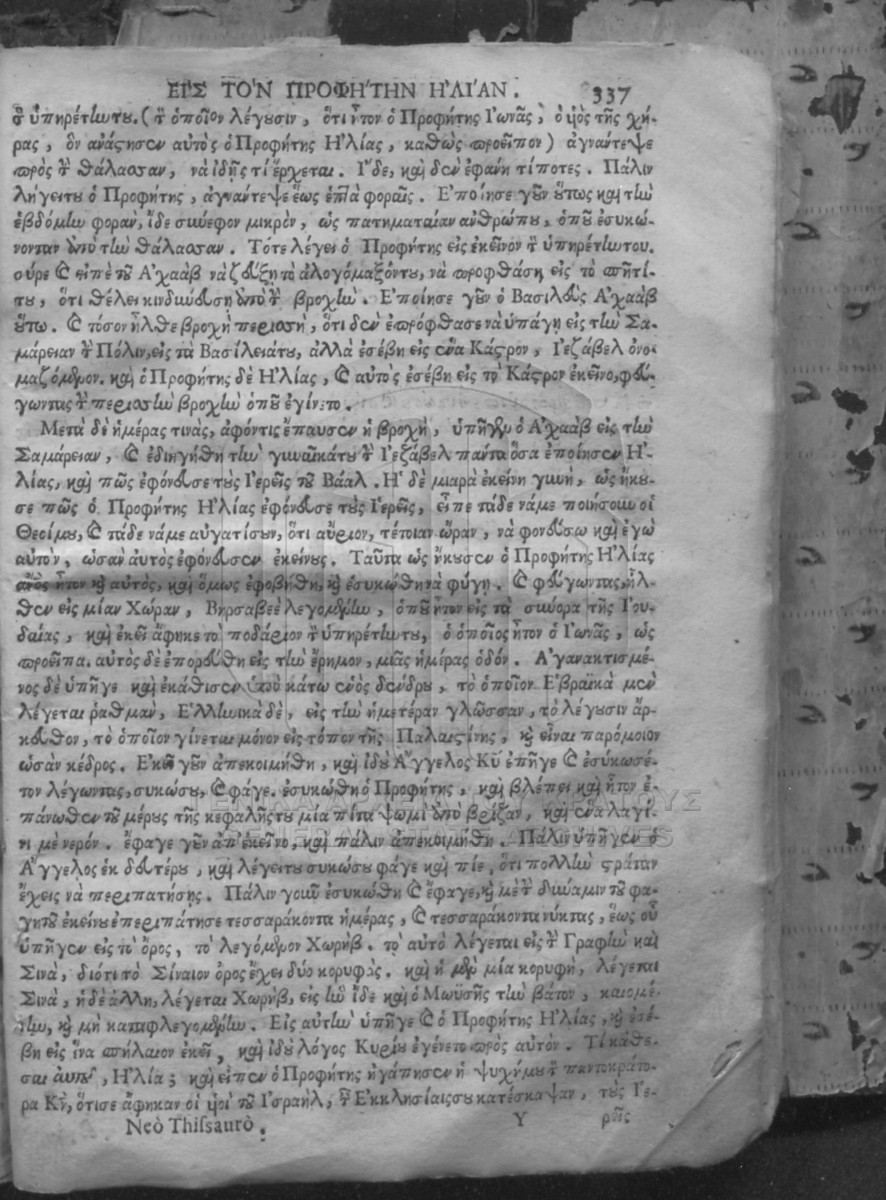 ΕΙΣ ΤΟΝ ΠΡΟΦΗΤΗΝ ΗΛΙΑΝ. 337
ὁ ὑπηρέτην του. (τὸν ὁποῖον λέγουσιν, ὅτι ἦτον ὁ Προφήτης Ἰωνᾶς, ὁ υἱὸς τῆς χή-
ρας, ὃν ἀνάστησεν αὐτὸς ὁ Προφήτης Ἠλίας, καθὼς προεῖπον) ἀγνάντεψε
πρὸς τὴν θάλασσαν, νὰ ἰδῇς τί ἔρχεται. Ἴδε, καὶ δὲν ἐφάνη τίποτες. Πάλιν
λέγει του ὁ Προφήτης, ἀγνάντεψε ἕως ἑπτὰ φοραῖς. Ἐποίησε γοῦν οὕτως καὶ τὴν
ἑβδόμην φοράν, ἴδε σύνεφον μικρὸν, ὡς πατηματαίαν ἀνθρώπου, ὁποῦ ἐσυκώ-
νονταν ἀπὸ τὴν θάλασσαν. Τότε λέγει ὁ Προφήτης εἰς ἐκεῖνον τὸν ὑπηρέτην του.
σύρε καὶ εἰπὲ τοῦ Ἀχαὰβ νὰ ζεύξῃ τὸ ἀλογόμαξόν του, νὰ προφθάσῃ εἰς τὸ σπῆτί
του, ὅτι θέλει κινδυνεύσῃ ἀπὸ τὴν βροχήν. Ἐποίησε γοῦν ὁ Βασιλεὺς Ἀχαὰβ
οὕτω. καὶ τόσον ἦλθε βροχὴ περισσὴ, ὅτι δὲν ἐπρόφθασε νὰ ὑπάγῃ εἰς τὴν Σα-
μάρειαν τὴν Πόλιν, εἰς τὰ Βασίλειά του, ἀλλὰ ἐσέβη εἰς ἕνα Κάστρον, Ἰεζάβελ ὀνο-
μαζόμενον. καὶ ὁ Προφήτης δὲ Ἠλίας, καὶ αὐτὸς ἐσέβη εἰς τὸ Κάστρον ἐκεῖνο, φεύ-
γωντας τὴν περισσὴν βροχὴν ὁποῦ ἐγίνετο.
Μετὰ δὲ ἡμέρας τινὰς, ἀφόντις ἔπαυσεν ἡ βροχὴ, ὑπῆγεν ὁ Ἀχαὰβ εἰς τὴν
Σαμάρειαν, καὶ ἐδιηγήθη τὴν γυναῖκά του τὴν Ἰεζάβελ πάντα ὅσα ἐποίησεν Ἠ-
λίας, καὶ πῶς ἐφόνευσε τοὺς Ἱερεῖς τοῦ Βάαλ. Ἡ δὲ μιαρὰ ἐκείνη γυνὴ, ὡς ἤκου-
σε πῶς ὁ Προφήτης Ἠλίας ἐφόνευσε τοὺς Ἱερεῖς, εἶπε τάδε νά με ποιήσουν οἱ
Θεοί μου, καὶ τάδε νά με αὐγατίσουν, ὅτι αὔριον, τέτοιαν ὥραν, νὰ φονεύσω καὶ ἐγὼ
αὐτὸν, ὡσὰν αὐτὸς ἐφόνευσεν ἐκείνους. Ταῦτα ὡς ἤκουσεν ὁ Προφήτης Ἠλίας
ἦτον καὶ αὐτὸς, καὶ ὅμως ἐφοβήθη, καὶ ἐσυκώθη νὰ φύγῃ. καὶ φεύγωντας, ἦλ-
θεν εἰς μίαν Χώραν, Βηρσαβεὲ λεγομένην, ὁποῦ ἦτον εἰς τὰ σύνορα τῆς Ἰου-
δαίας, καὶ ἐκεῖ ἄφηκε τὸ ποδάριον τὸν ὑπηρέτην του, ὁ ὁποῖος ἦτον ὁ Ἰωνᾶς, ὡς
προεῖπα. αὐτὸς δὲ ἐπορεύθη εἰς τὴν ἔρημον, μιᾶς ἡμέρας ὁδόν. Ἀγανακτισμέ-
νος δὲ ὑπῆγε καὶ ἐκάθισεν ἀπὸ κάτω ἑνὸς δένδρου, τὸ ὁποῖον Ἑβραϊκὰ μὲν
λέγεται ῥαθμὰν, Ἑλληνικὰ δὲ, εἰς τὴν ἡμετέραν γλῶσσαν, τὸ λέγουσιν ἄρ-
κευθον, τὸ ὁποῖον γίνεται μόνον εἰς τόπον τῆς Παλαιστίνης, καὶ εἶναι παρόμοιον
ὡσὰν κέδρος. Ἐκεῖ γοῦν ἀπεκοιμήθη, καὶ ἰδοὺ Ἄγγελος Κυ ἐπῆγε καὶ ἐσύκωσέ-
τον λέγωντας, συκώσου, καὶ φάγε. ἐσυκώθη ὁ Προφήτης, καὶ βλέπει καὶ ἦτον ἐ-
πάνωθεν τοῦ μέρους τῆς κεφαλῆς του μία πίτα ψωμὶ ἀπὸ βρίζαν, καὶ ἕνα λαγί-
νι μὲ νερόν. ἔφαγε γοῦν ἀπ' ἐκεῖνο, καὶ πάλιν ἀπεκοιμήθη. Πάλιν ὑπῆγεν ὁ
Ἄγγελος ἐκ δευτέρου, καὶ λέγει του συκώσου φάγε καὶ πίε, ὅτι πολλὴν στράταν
ἔχεις νὰ περιπατήσῃς. Πάλιν γοῦν ἐσυκώθη καὶ ἔφαγε, καὶ μὲ τὴν δύναμιν τοῦ φα-
γητοῦ ἐκείνου ἐπεριπάτησε τεσσαράκοντα ἡμέρας, καὶ τεσσαράκοντα νύκτας, ἕως οὗ
ὑπῆγεν εἰς τὸ ὄρος, τὸ λεγόμενον Χωρήβ. τὸ αὐτὸ λέγεται εἰς τὴν Γραφὴν καὶ
Σινᾶ, διότι τὸ Σίναιον ὄρος ἔχει δύο κορυφάς. καὶ ἡ μὲν μία κορυφὴ, λέγεται
Σινᾶ, ἡ δὲ ἄλλη, λέγεται Χωρὴβ, εἰς ἣν ἴδε καὶ ὁ Μωϋσῆς τὴν βάτον, καιομέ-
νην, καὶ μὴ καταφλεγομένην. Εἰς αὐτὴν ὑπῆγε καὶ ὁ Προφήτης Ἠλίας, καὶ ἐσέ-
βη εἰς ἕνα σπήλαιον ἐκεῖ, καὶ ἰδοὺ λόγος Κυρίου ἐγένετο πρὸς αὐτόν. Τί κάθε-
σαι αὐτοῦ, Ἠλία; καὶ εἶπεν ὁ Προφήτης ἠγάπησεν ἡ ψυχή μου τὸν παντοκράτο-
ρα Κν, ὅτι σε ἄφηκαν οἱ υἱοὶ τοῦ Ἰσραὴλ, τὰς Ἐκκλησίαις σου κατέσκαψαν, τοὺς Ἱε-
Neò Thissaurò. Y ρεῖς
ΓΕΝΙΚΑ ΑΡΧΕΙΑ ΤΟΥ ΚΡΑΤΟΥΣ
GENERAL STATE ARCHIVES